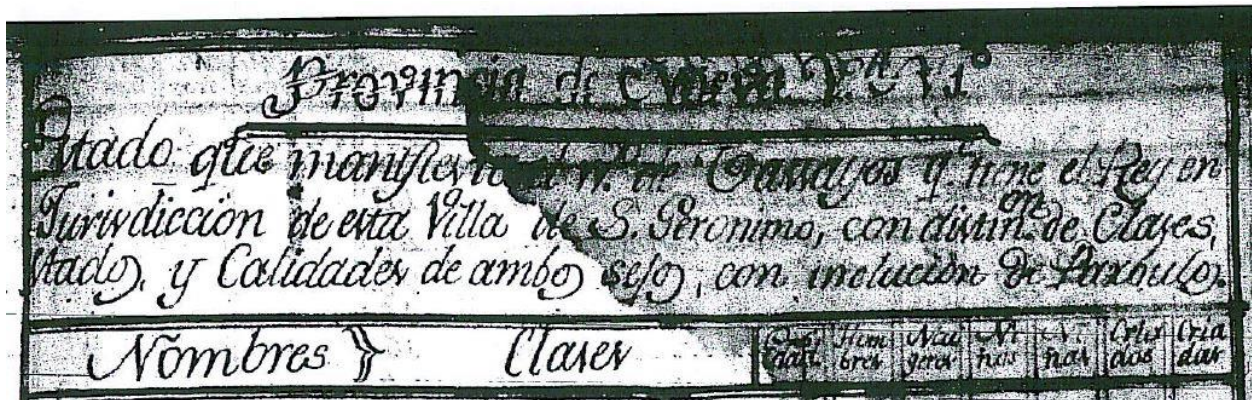 Provincia de Nueva Vizª
Estado que manifiesta el nº de Vasayos q. tiene el Rey en
Jurisdiccion de esta Villa de S. Geronimo, con distinon de Clases,
stados, y Calidades de ambos sejos, con inclucion de Parbulos.
Nombres } Clases Hom bres Mu geres Ni ños Ni ñas Cria dos Cria das